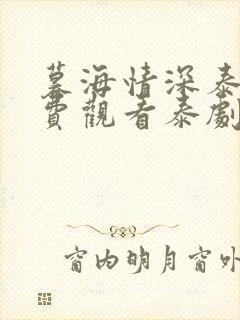 墓海情深泰
費觀看泰劇
窗内明月窗外